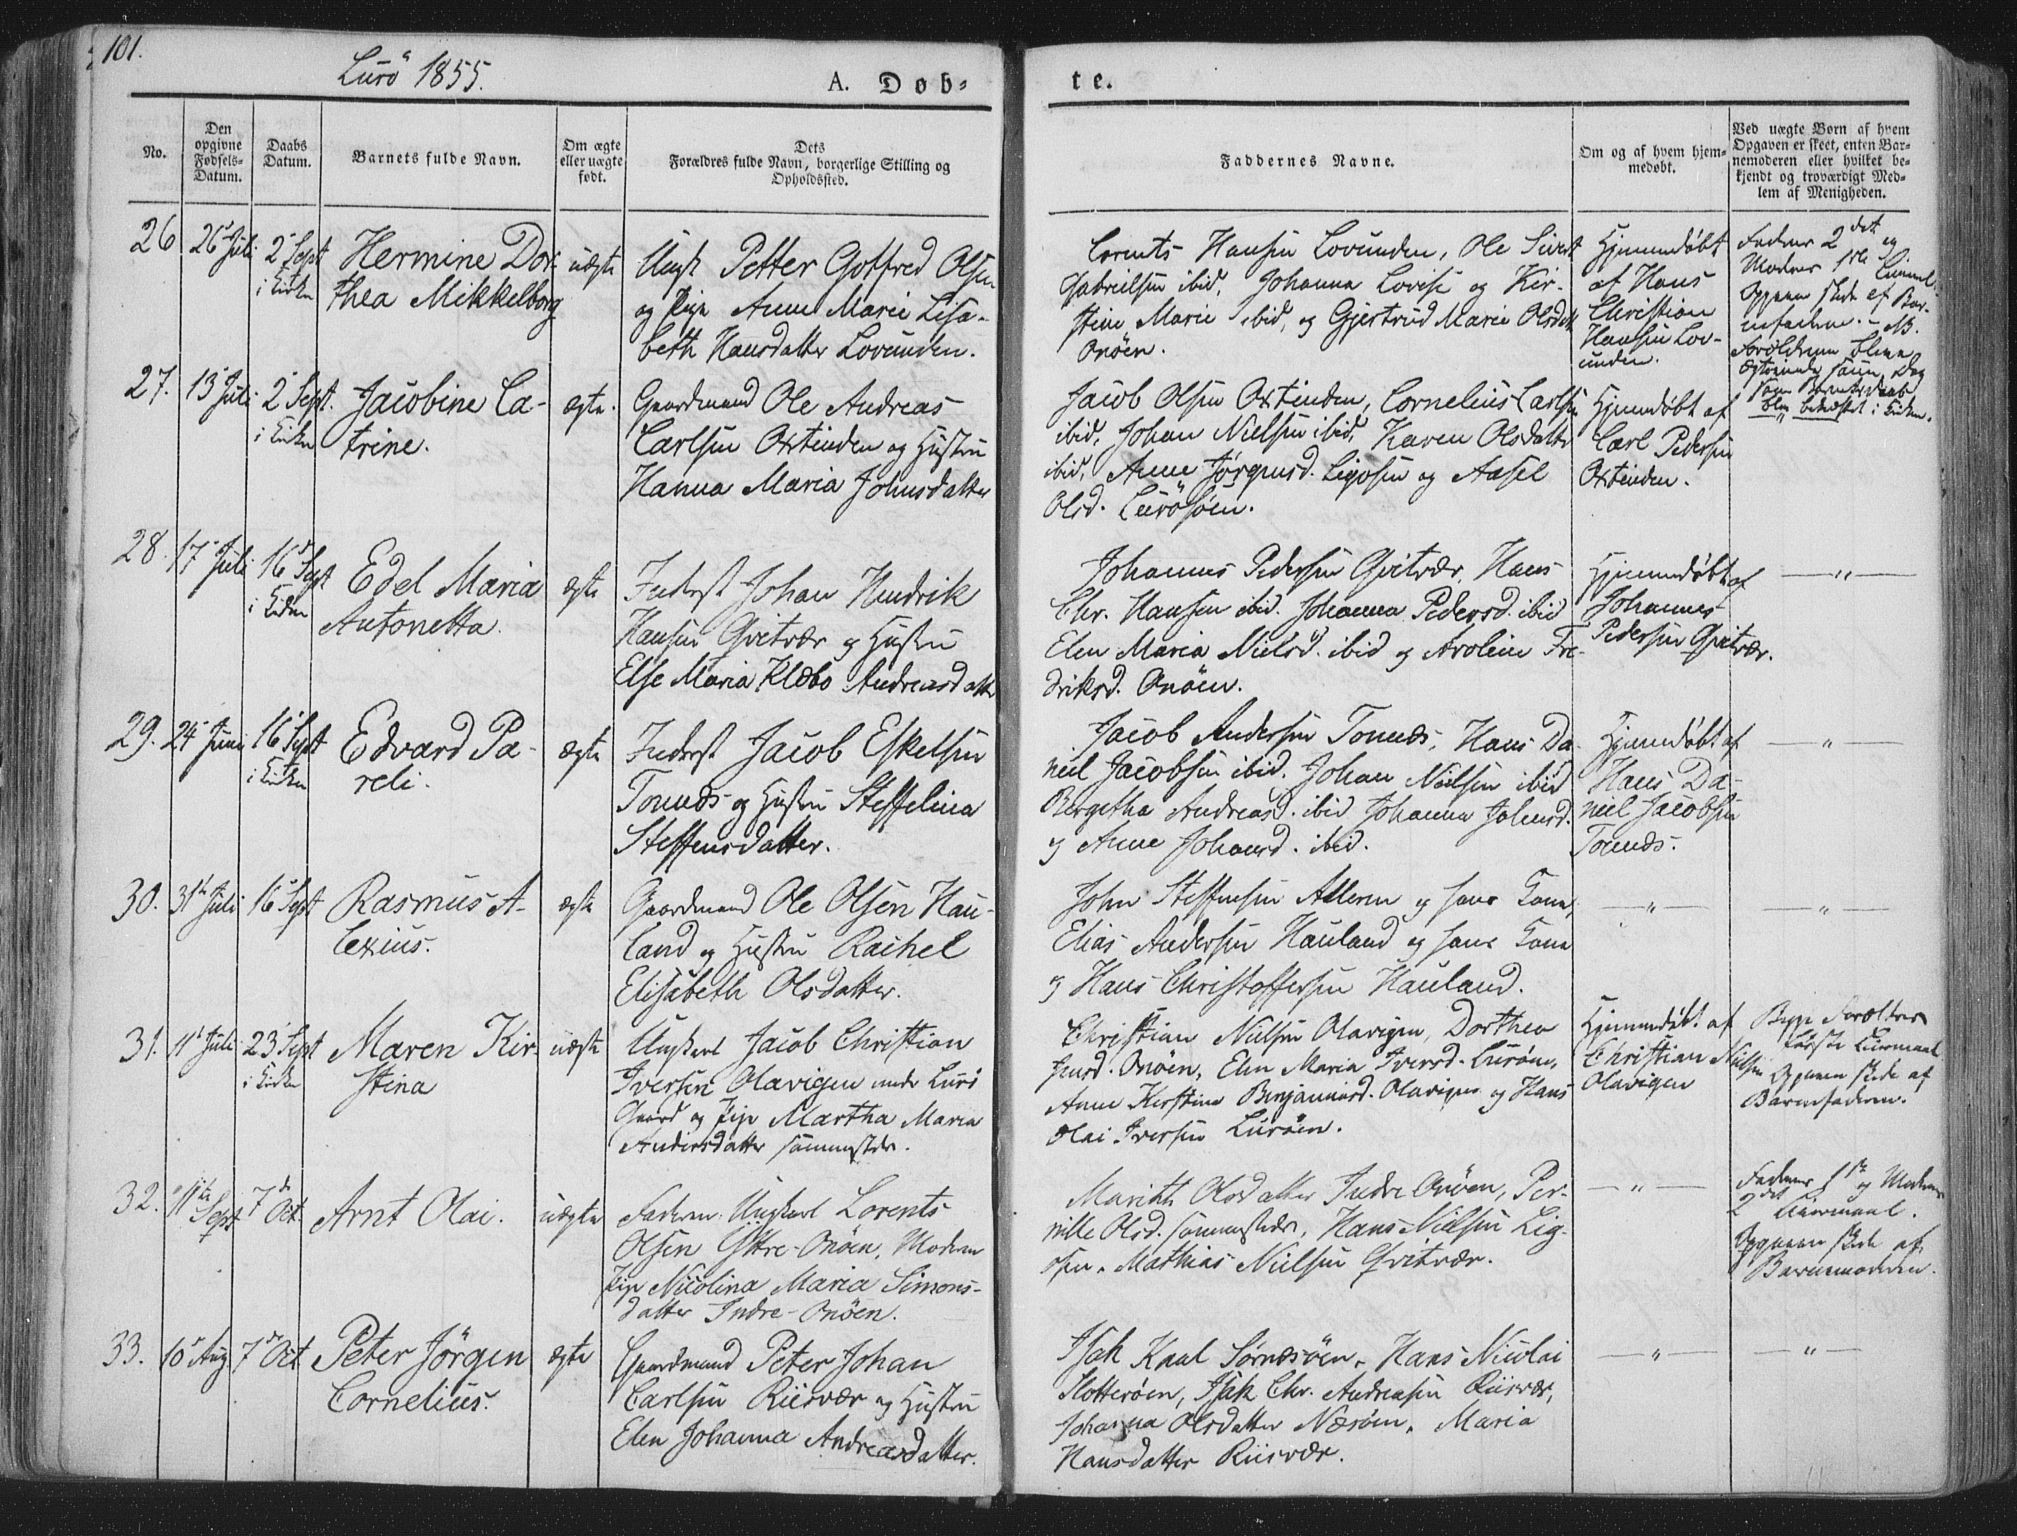 101.
Lurö 1855.
A. Døb-
te.
No.
Den opgivne Fødsels-Datum.
Daabs Datum.
Barnets fulde Navn.
Om ægte eller uægte født.
Dets Forældres fulde Navn, borgerlige Stilling og Opholdssted.
Faddernes Navne.
Om og af hvem hjemmedøbt.
Ved uægte Børn af hvem Opgaven er skeet, enten Barnemoderen eller hvilket bekjendt og troværdigt Medlem af Menigheden.
26 26 Juli 2 Sept i Kirken
Hermine Dor-
thea Mikkelborg
uægte
Ungk Petter Gotfred Olsen
og Pige Anne Marie Lisa-
beth Hansdatter Lovunden.
Lorents Hansen Lovunden, Ole Sivert
Gabrielsen ibid, Johanna Lovise og Kir-
stine Marie ibid, og Gjertrud Marie Olsdatt
Onöen.
Hjemmedöbt
af Hans
Christian
Hansen Lov-
unden.
Faderens 2det og
Moderens 1ste Leiermaal.
Opgaven skede af Bar-
nefaderen. - NB.
Forældrene bleve
ægteviede samme Dag
som Barnets Daab
blev bekræftet i Kirken.
27. 13 Juli 2 Sept. i Kirken
Jacobine Ca-
trine.
ægte.
Gaardmand Ole Andreas
Carlsen Oxtinden og Hustru
Hanna Maria Johnsdatter
Jacob Olsen Oxtinden, Cornelius Carlsen
ibid, Johan Nielsen ibid, Karen Olsdattr
ibid, Anne Jörgensd. Ligosen og Aasel
Olsd. Luröföen.
Hjemmedöbt af
Carl Pedersen
Oxtinden.
28. 17 Juli 16 Sept i Kirken
Edel Maria
Antonetta.
ægte
Inderst Johan Hendrik
Hansen Qvitvær og Hustru
Else Maria Klæbo Andreasdatter
Johannes Pedersen Qvitvær, Hans
Chr. Hansen ibid. Johanna Pedersd. ibid
Elen Maria Nielsd. ibid og Avoline Fre-
driksd. Onöen.
Hjemmedöbt af
Johannes
Pedersen Qvitvær.
— „ —
29. 24 Juni 16 Sept i Kirken
Edvard Pa-
reli.
ægte
Inderst Jacob Eskelsen
Tonnes og Hustru Steffelina
Steffensdatter.
Jacob Andersen Tonnes, Hans Da-
niel Jacobsen ibid. Johan Nielsen ibid
Bergetha Andreasd. ibid Johanna Johnsd.
og Anne Johansd. ibid.
Hjemmedöbt af
Hans Da-
niel Jacobsen
Tonnes.
— „ —
30. 31te Juli 16 Sept
Rasmus A-
lexius.
ægte
Gaardmand Ole Olsen Hau-
land og Hustru Rachel
Elisabeth Olsdatter.
John Steffensen Alleren og hans Kone,
Elias Andersen Hauland og hans Kone
og Hans Christoffersen Hauland.
— „ —
— „ —
31. 11 Juli 23 Sept i Kirken
Maren Kir-
stina
uægte
Ungkarl Jacob Christian
Iversen Olavigen under Lurö
Gaard og Pige Martha Maria
Andersdatter sammesteds.
Christian Nielsen Olavigen, Dorthea
Jensd. Onöen, Elen Maria Iversd. Luröen,
Anne Kirstine Benjaminsd. Olavigen og Hans
Olai Iversen Luröen.
Hjemmedöbt af
Christian Nielsen
Olavigen
Begge Forældres
første Leiermaal
Opgaven skede af
Barnefaderen.
32. 11te Sept 7de Oct.
Arnt Olai.
uægte
Faderen: Ungkarl Lorents
Olsen Yttre-Onöen, Moderen
Pige Nicolina Maria Simons-
datter Indre-Onöen.
Marith Olsdatter Indre Onöen, Per-
nille Olsd. sammesteds, Hans Nielsen Lig-
osen, Mathias Nielsen Qvitvær.
— „ —
Faderens 1ste og Moderens
2det Leiermaal.
Opgaven skede af
Barnemoderen.
33. 10 Aug 7 Oct
Peter Jörgen
Cornelius.
ægte
Gaardmand Peter Johan
Carlsen Riisvær og Hustru
Elen Johanna Andreasdatter.
Isak Knal Sörnesöen, Hans Nicolai
Slotteröen, Isak Chr. Andreasen Riisvær,
Johanna Olsdatter Næröen, Maria
Hansdatter Riisvær.
— „ —
— „ —